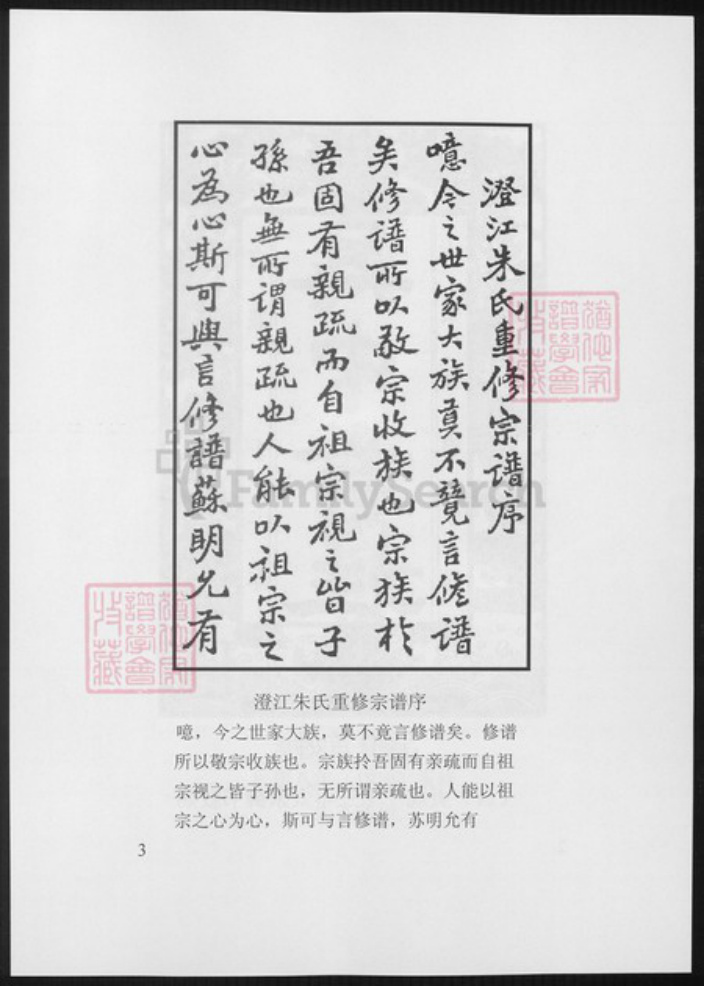 澄江朱氏重修宗譜序
噫今之世家大族莫不競言修譜
矣修譜所以敬宗收族也宗族於
吾固有親疏而自祖宗視之皆子
孫也無所谓親疏也人能以祖宗之
心為心斯可與言修譜蘇明允有
澄江朱氏重修宗谱序
噫，今之世家大族，莫不竟言修谱矣。修谱
所以敬宗收族也。宗族拎吾固有亲疏而自祖
宗视之皆子孙也，无所谓亲疏也。人能以祖
宗之心为心，斯可与言修谱，苏明允有
3
FamilySearch